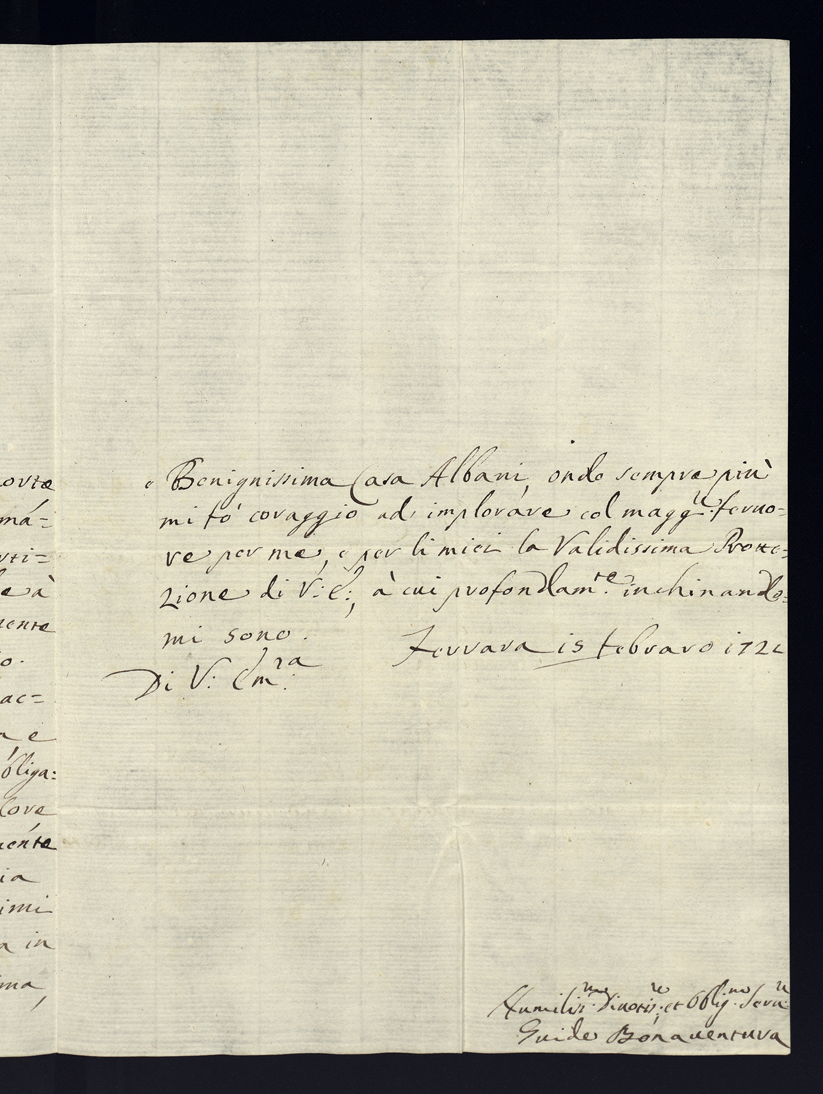 orte
má=
rti=
e à
uente
o.
ac=
a e
bliga:
lore
mente
ia
imi
a in
ima,
e Benignissima Casa Albani, onde sempre più
mi fò coraggio ad implorare col magg.re feruo=
re per me, e per li miei la Validissima Prote=
zione di V: E:, à cui profondam.te inchinando=
mi sono. Ferrara 15 febraro 172
Di V: Em.ra
Humiliss.mo Diuotis.mo et Oblig.mo Seru.re
Guido Bonauentura